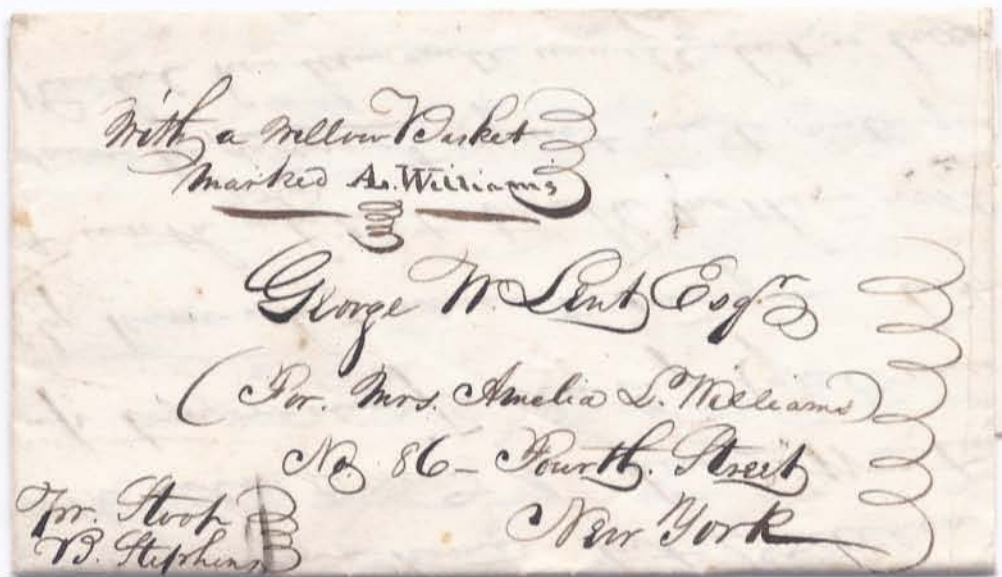 With a willow Basket
marked A.L. Williams
George W. Lent Esqr
(For. Mrs. Amelia L. Williams)
No. 86 - Fourth. Street
New York
Pr. Sloop
B. Stephens